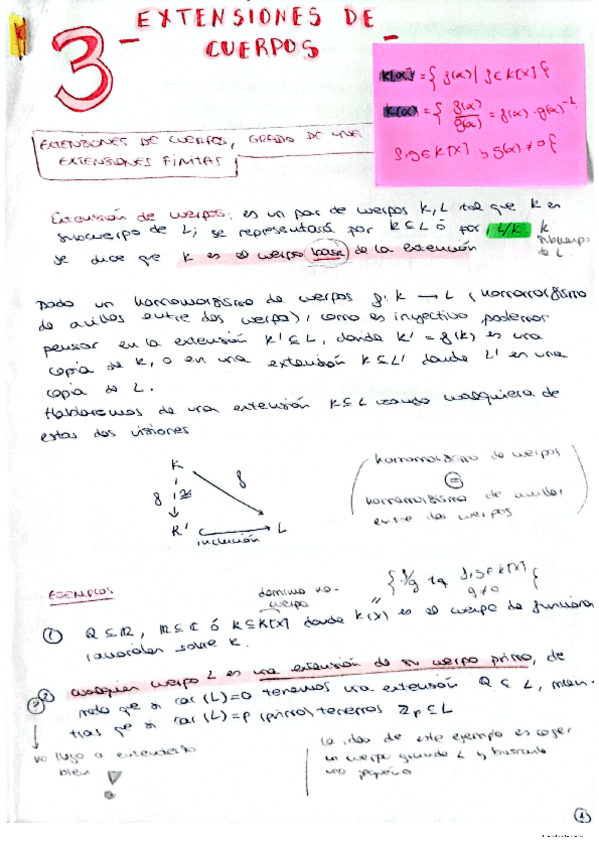 3- EXTENSIONES DE
CUERPOS
K[α] = { f(α) | f ∈ K[X] }
K(α) = { f(α)/g(α) = f(α)·g(α)⁻¹
f,g ∈ K[X] y g(α) ≠ 0 }
EXTENSIONES DE CUERPOS, GRADO DE UNA
EXTENSIONES FINITAS
Extensión de cuerpos: es un par de cuerpos K, L tal que K es
subcuerpo de L; se representará por K ⊆ L ó por L/K
K subcuerpo de L.
se dice que K es el cuerpo base de la extensión
Dado un homomorfismo de cuerpos f: K → L (homomorfismo
de anillos entre dos cuerpos), como es inyectivo podemos
pensar en la extensión K' ⊆ L, donde K' = f(K) es una
copia de K, o en una extensión K ⊆ L' donde L' es una
copia de L.
Hablaremos de una extensión K ⊆ L usando cualquiera de
estas dos visiones
K
f ≅ f
K' L
inclusión
homomorfismo de cuerpos
=
homomorfismo de anillos
entre dos cuerpos
EJEMPLOS
dominio no-
cuerpo
{ f/g tq f,g ∈ K[X] g≠0 }
① Q ⊆ R, R ⊆ C ó K ⊆ K(X) donde K(X) es el cuerpo de funciones
racionales sobre K.
② Cualquier cuerpo L es una extensión de su cuerpo primo, de
modo que si car(L)=0 tenemos una extensión Q ⊆ L, mien-
tras que si car(L)=p (primo) tenemos Zp ⊆ L
?
no llego a entenderlo
bien !
la idea de este ejemplo es coger
un cuerpo grande L y buscarle
uno pequeño
1